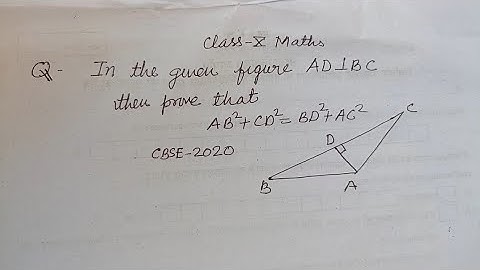 Class-X Maths
Q- In the given figure AD⊥BC
then prove that
AB²+CD²=BD²+AC²
CBSE-2020
C
D
B
A